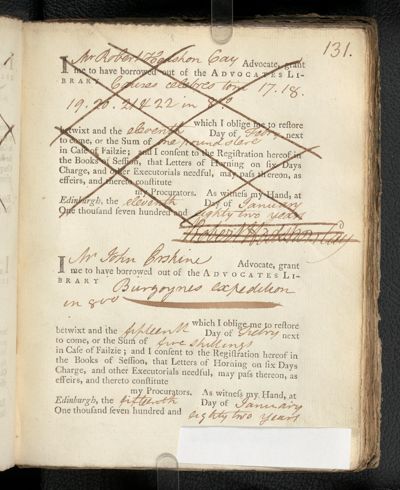 131.
I Mr Robert Hodshon Cay Advocate, grant
me to have borrowed out of the ADVOCATES LI-
BRARY Causes celebres tom. 17. 18.
19. 20. 21 & 22 in 8vo
which I oblige me to reſtore
betwixt and the eleventh Day of Febry next
to come, or the Sum of one pound ſter
in Caſe of Failzie; and I conſent to the Regiſtration hereof in
the Books of Seſſion, that Letters of Horning on ſix Days
Charge, and other Executorials needful, may paſs thereon, as
effeirs, and thereto conſtitute
my Procurators. As witneſs my Hand, at
Edinburgh, the eleventh Day of January
One thouſand ſeven hundred and eighty two years
Robert Hodshon Cay
I Mr John Erskine Advocate, grant
me to have borrowed out of the ADVOCATES LI-
BRARY Burgoynes expedition
in 8vo
which I oblige me to reſtore
betwixt and the fifteenth Day of Febry next
to come, or the Sum of five shillings
in Caſe of Failzie; and I conſent to the Regiſtration hereof in
the Books of Seſſion, that Letters of Horning on ſix Days
Charge, and other Executorials needful, may paſs thereon, as
effeirs, and thereto conſtitute
my Procurators. As witneſs my Hand, at
Edinburgh, the fifteenth Day of January
One thouſand ſeven hundred and eighty two years